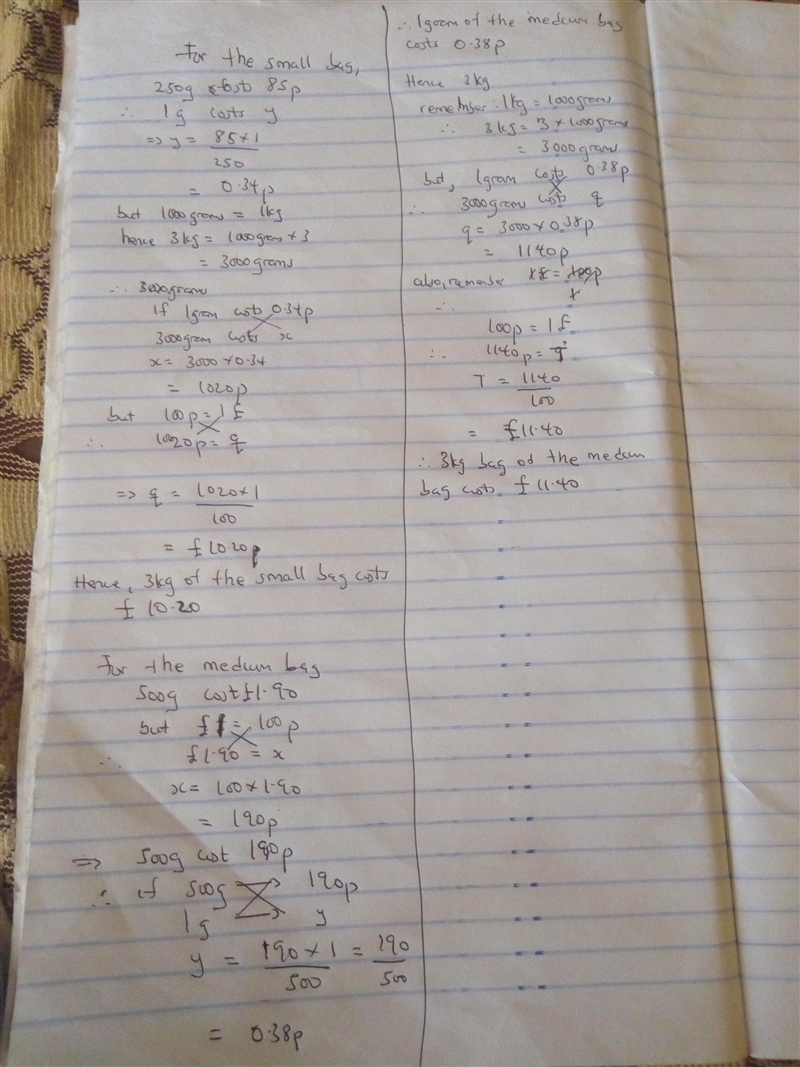 For the small bag,
250g costs 85p
∴ 1g costs y
=> y = 85 × 1
250
= 0.34p
but 1000grams = 1kg
hence 3kg = 1000gram × 3
= 3000grams
∴ 3000grams
if 1gram costs 0.34p
3000gram costs x
x = 3000 × 0.34
= 1020p
but 100p = 1£
∴ 1020p = q
=> q = 1020 × 1
100
= £10.20p
Hence, 3kg of the small bag costs
£10.20
For the medium bag
500g cost £1.90
but £1 = 100p
∴ £1.90 = x
x = 100 × 1.90
= 190p
=> 500g cost 190p
∴ if 500g 190p
1g y
y = 190 × 1 = 190
500 500
= 0.38p
∴ 1gram of the medium bag
costs 0.38p
Hence 3kg
remember: 1kg = 1000grams
∴ 3kg = 3 × 1000grams
= 3000grams
but, 1gram costs 0.38p
∴ 3000grams cost q
q = 3000 × 0.38p
= 1140p
also, remember
∴
100p = 1£
∴ 1140p = T
T = 1140
100
= £11.40
∴ 3kg bag of the medium
bag costs £11.40